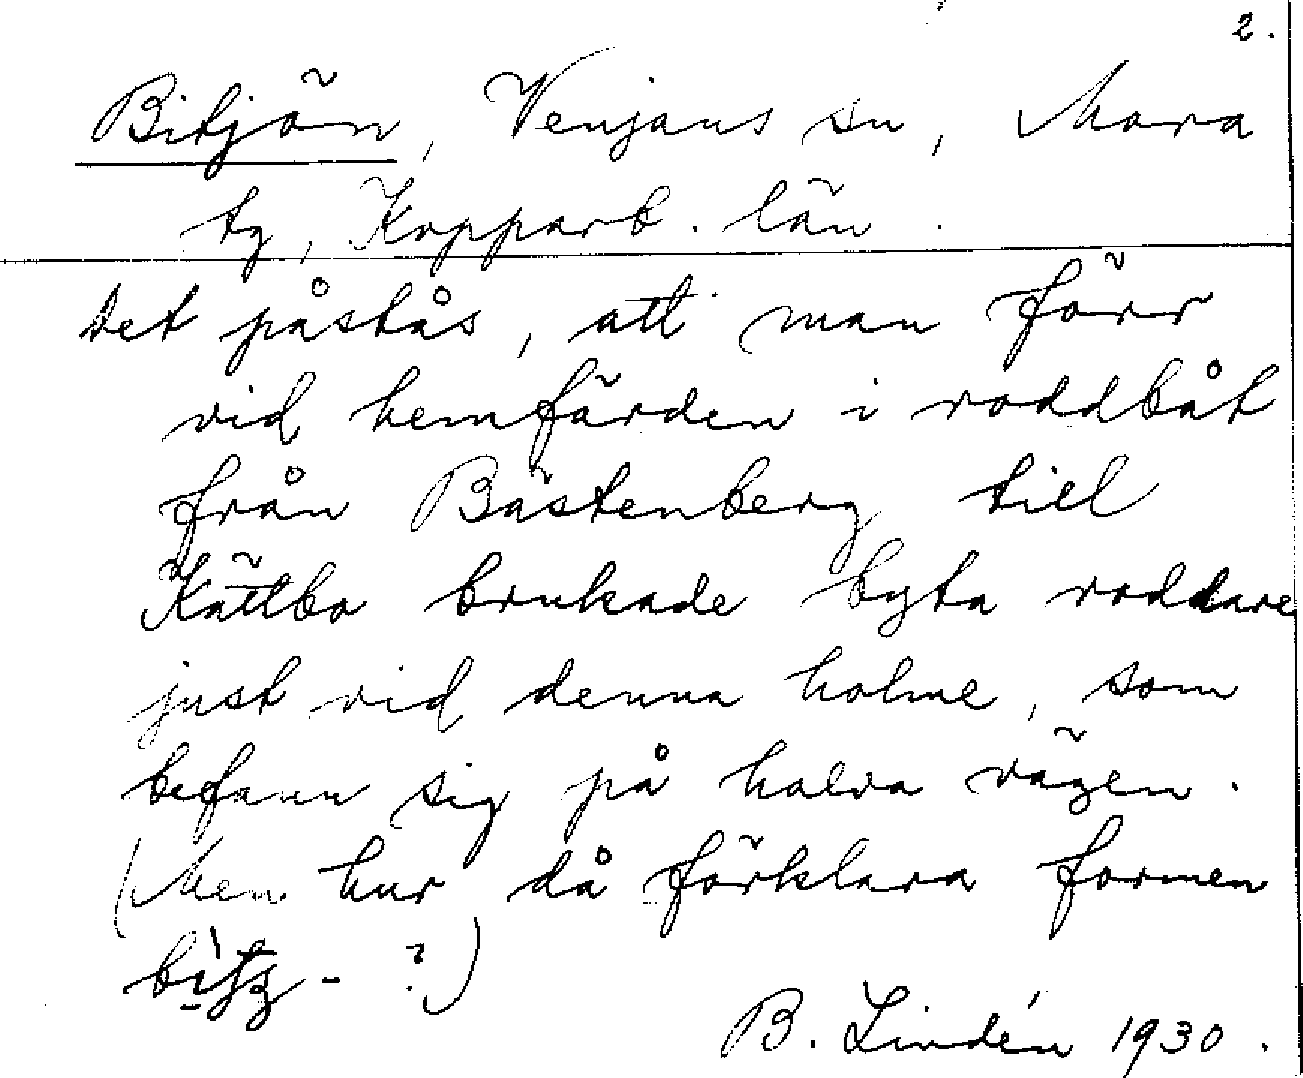 2.
Bitjön, Venjans sn, Mora
tg, Kopparb. län.
Det påstås, att man förr
vid hemfärden i roddbåt
från Bästenberg till
Kättbo brukade byta roddare
just vid denna holme, som
befann sig på halva vägen.
(Men hur då förklara formen
- ?)
B. Lindén 1930.